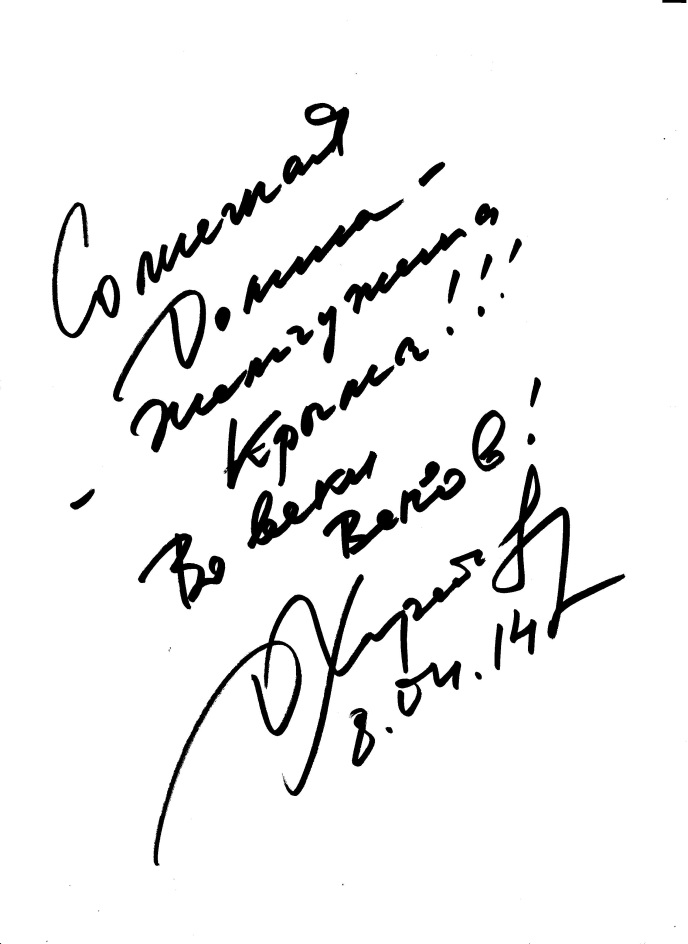 Солнечная
Долина -
жемчужина
- Крыма!!!
Во веки
веков!
8.04.14